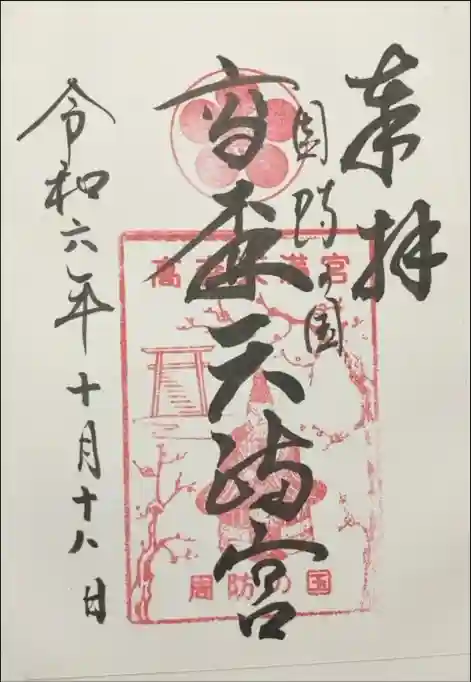 奉拝
周防の国
高森天満宮
令和六年十月十八日
高森天満宮
周防の国